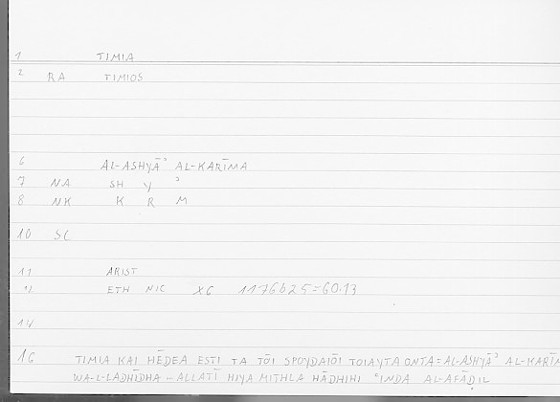 1 TIMIA
2 RA TIMIOS
6 AL-ASHYĀʾ AL-KARĪMA
7 NA SH Y ʾ
8 NK K R M
10 SC
11 ARIST
12 ETH NIC X6 1176b25=60.13
14
16 TIMIA KAI HĒDEA ESTI TA TŌI SPOYDAIŌI TOIAYTA ONTA=AL-ASHYĀʾ AL-KARĪM
WA-L-LADHĪDHA – ALLATĪ HIYA MITHLA HĀDHIHI ʿINDA AL-AFĀḌIL